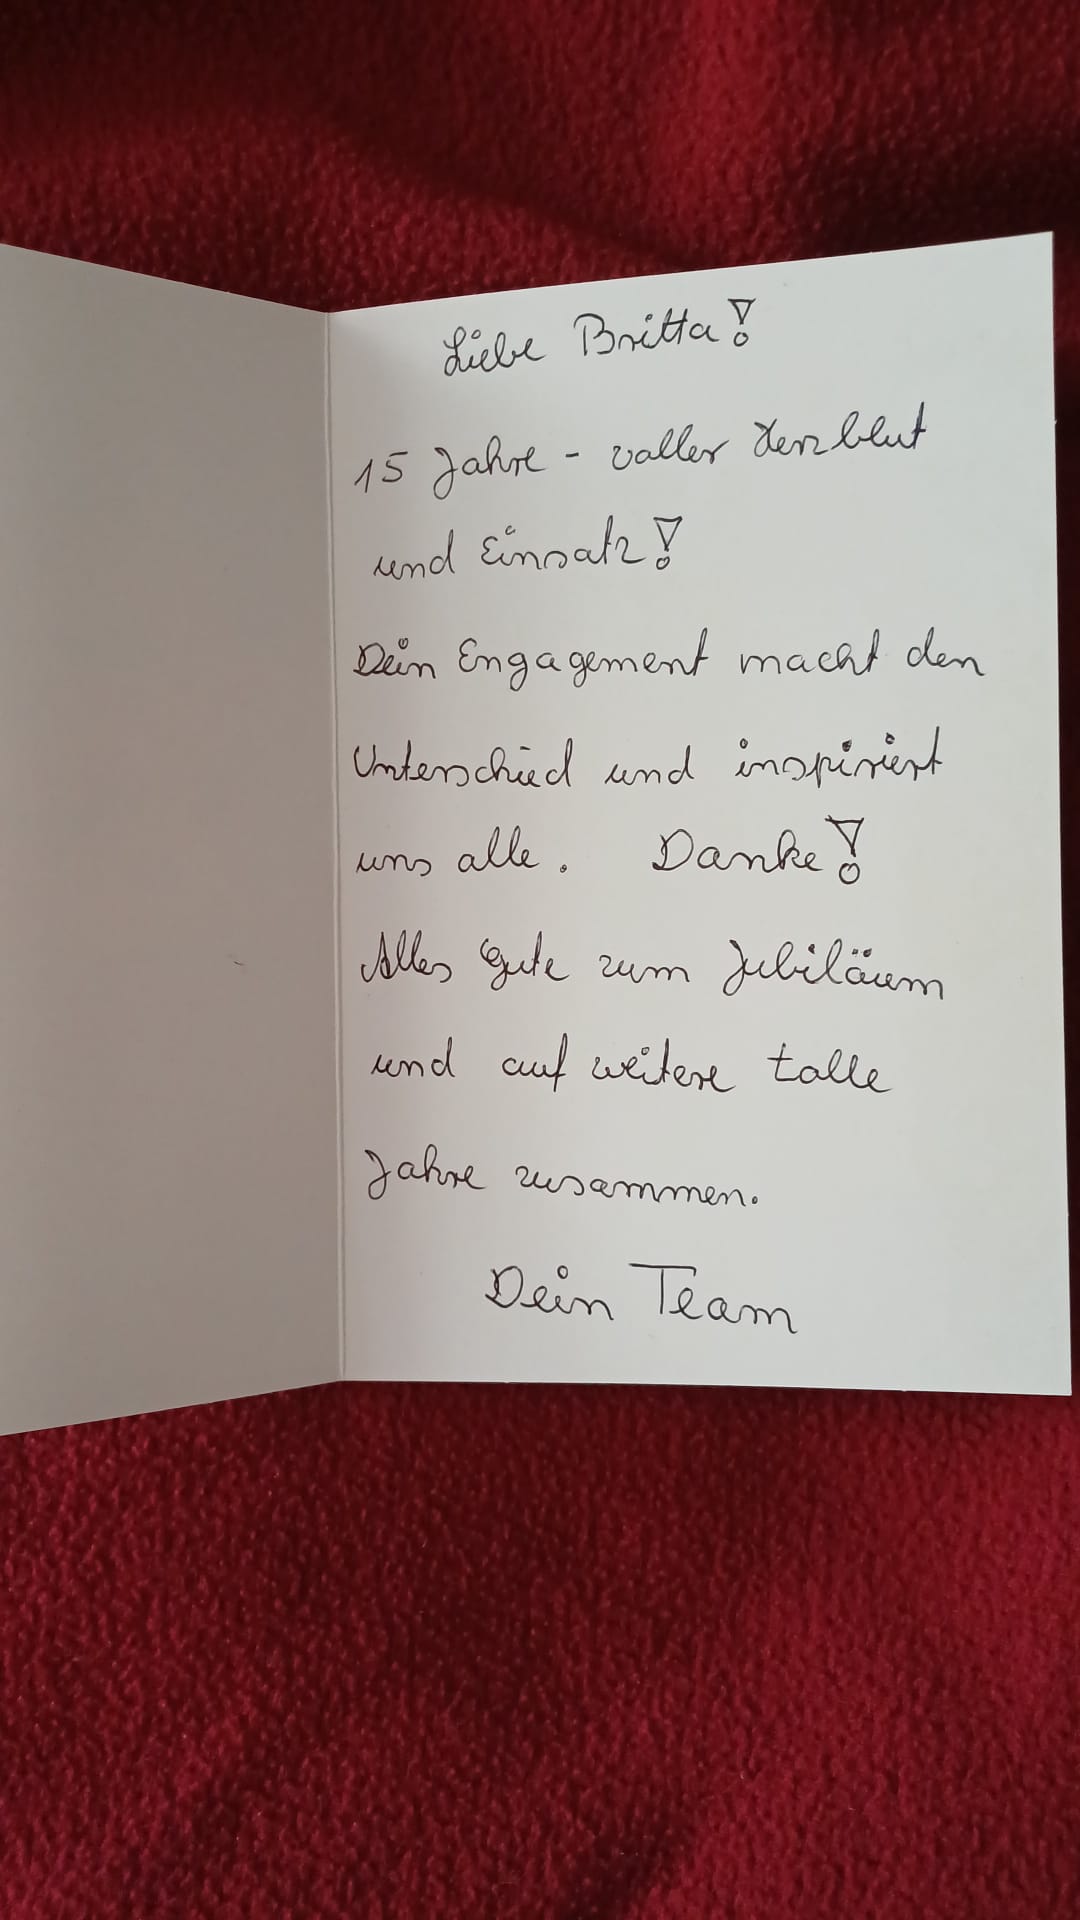 Liebe Britta!
15 Jahre - voller Herzblut
und Einsatz!
Dein Engagement macht den
Unterschied und inspiriert
uns alle. Danke!
Alles Gute zum Jubiläum
und auf weitere tolle
Jahre zusammen.
Dein Team